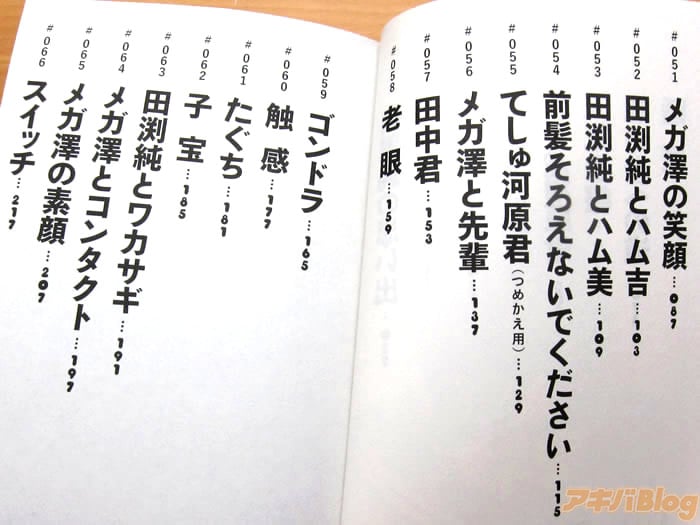 #051 メガ澤の笑顔…087
#052 田渕純とハム吉…103
#053 田渕純とハム美…109
#054 前髪そろえないでください…115
#055 てしゅ河原君(つめかえ用)…129
#056 メガ澤と先輩…137
#057 田中君…153
#058 老眼…159
#059 ゴンドラ…165
#060 触感…177
#061 たぐち…181
#062 子宝…185
#063 田渕純とワカサギ…191
#064 メガ澤とコンタクト…197
#065 メガ澤の素顔…207
#066 スイッチ…217
アキバBlog